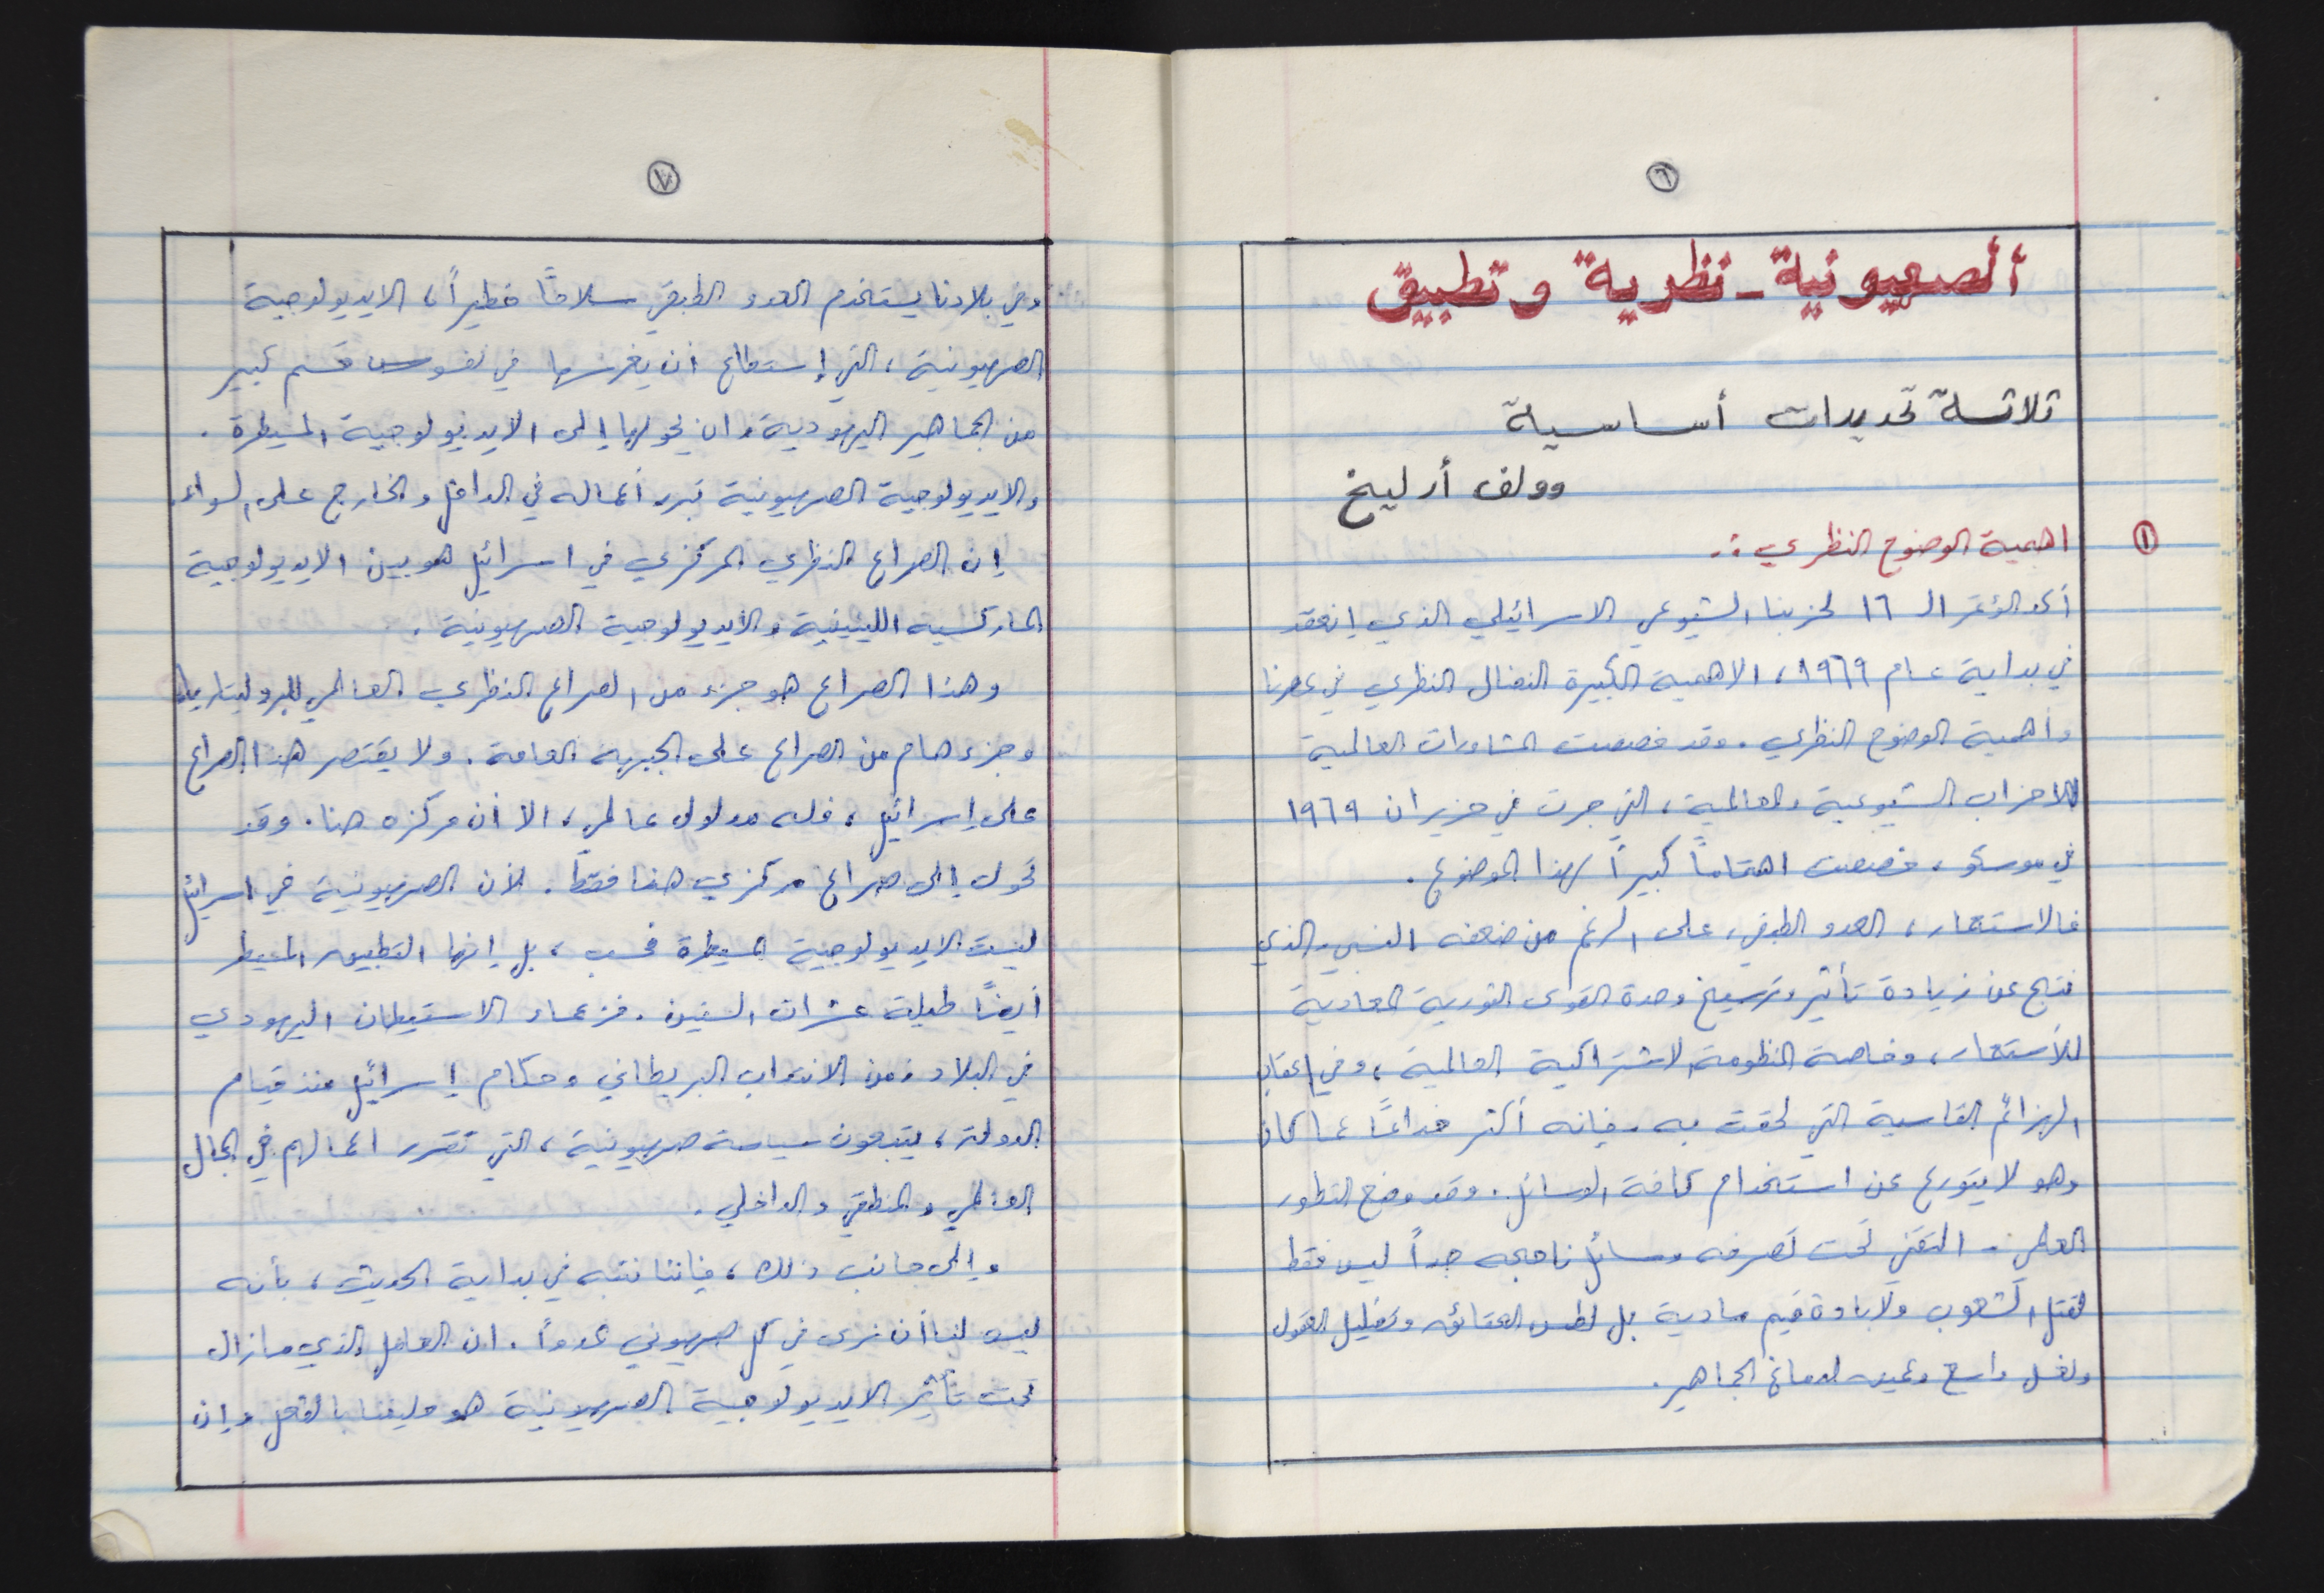 ٦
ألصهيونية - نظرية وتطبيق
ثلاثة تحديدات أساسية
وولف أرليخ
١ اهمية الوضوح النظري :.
أكد المؤتمر الـ ١٦ لحزبنا الشيوعي الاسرائيلي الذي إنعقد
في بداية عام ١٩٦٩، الاهمية الكبيرة النضال النظري في عصرنا
وأهمية الوضوح النظري. وقد خصصت المشاورات العالمية
للاحزاب الشيوعية والعمالية، التي جرت في حزيران ١٩٦٩
في موسكو، خصصت اهتماماً كبيراً لهذا الموضوع.
فالاستعمار، العدو الطبقي، على الرغم من ضعفه النسبي والذي
نتج عن زيادة تأثير وترسيخ وحدة القوى الثورية المعادية
للأستعمار، وخاصة المنظومة الاشتراكية العالمية، وفي اعقاب
الهزائم القاسية التي لحقت به، فإنه أكثر خداعاً عما كان
وهو لا يتورع عن استخدام كافة الوسائل. وقد وضع التطور
العلمي - التقني تحت تصرفه وسائل ناجحه جداً ليس فقط
لقتل الشعوب ولأبادة قيم مادية بل لطمس الحقائق وتضليل العقول
ولغسل واسع وعميق لدماغ الجماهير.
٧
وفي بلادنا يستخدم العدو الطبقي سلاحاً خطيراً، الايديولوجية
الصهيونية، التي إستطاع أن يغرسها في نفوس قسم كبير
من الجماهير اليهودية وان يحولها إلى الايديولوجية المسيطرة.
والايديولوجية الصهيونية تبرر أعماله في الداخل والخارج على السواء.
إن الصراع النظري المركزي في اسرائيل هو بين الايديولوجية
الماركسية اللينينية والأيديولوجية الصهيونية.
وهذا الصراع هو جزء من الصراع النظري العالمي للبروليتاريا
وجزء هام من الصراع على الجبهة العامة. ولا يقتصر هذا الصراع
على إسرائيل، فله مدلول عالمي، الا أن مركزه هنا. وقد
تحول إلى صراع مركزي هنا فقط. لأن الصهيونية في اسرائيل
ليست الايديولوجية المسيطرة فحسب، بل إنها التطبيق المسيطر
أيضاً طيلة عشرات السنين. فزعماء الاستيطان اليهودي
في البلاد زمن الانتداب البريطاني وحكام إسرائيل منذ قيام
الدولة، يتبعون سياسة صهيونية، التي تقرر اعمالهم في المجال
العالمي والمنطقي والداخلي.
وإلى جانب ذلك، فإننا ننبه في بداية الحديث، بأنه
ليس لنا أن نرى في كل صهيوني عدواً. ان العامل الذي مازال
تحت تأثير الايديولوجية الصهيونية هو حليفنا بالفعل وإن